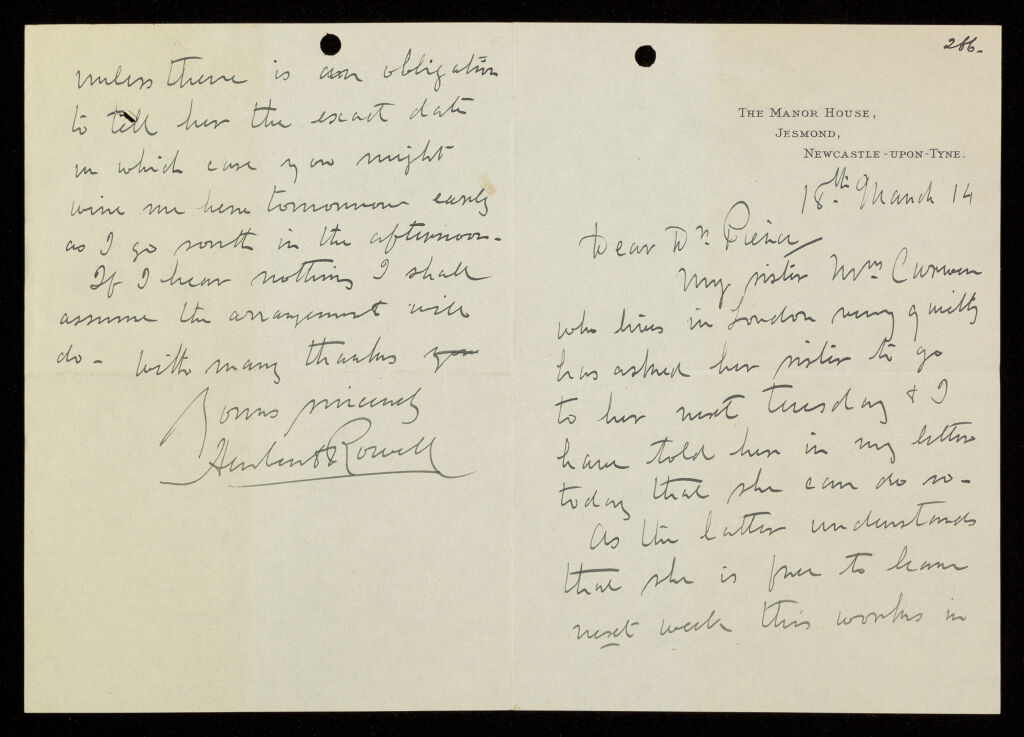 266.
THE MANOR HOUSE,
JESMOND,
NEWCASTLE-UPON-TYNE.
18th March 14
Dear Dr Pierce
My sister Mrs Curwen
who lives in London very quietly
has asked her sister to go
to her next Tuesday & I
have told her in my letter
today that she can do so -
As the latter understands
that she is free to leave
next week this works in
unless there is an obligation
to tell her the exact date
in which case you might
wire me here tomorrow early
as I go south in the afternoon -
If I hear nothing I shall
assume the arrangement will
do - With many thanks you
Yours sincerely
Herbert B Rowell